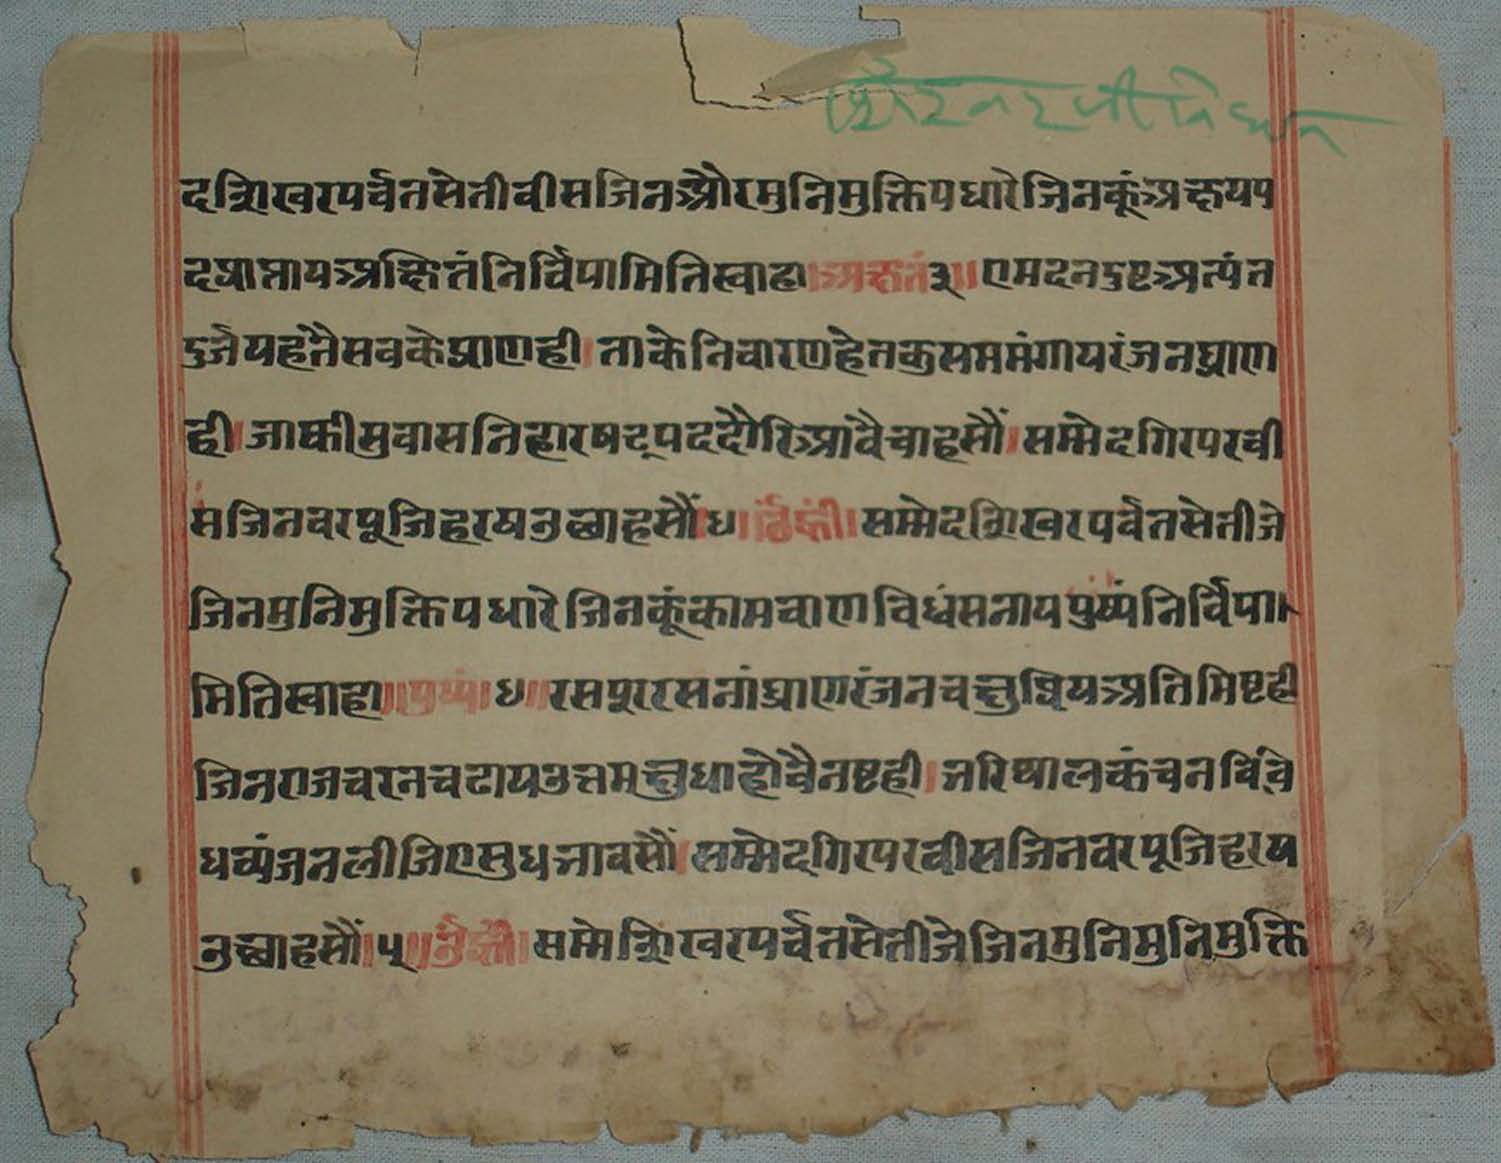 दशिखरपर्वतसेतीवीसजिनऔरमुनिमुक्तिपधारेजिनकूंअक्षयप
दप्राप्तायअक्षितंनिर्विपामितिस्वाहा।अक्षतं३॥एमदनदुष्टअत्यंत
दुर्जयहतैसवकेप्राणही।ताकेनिवारणहेतकुसममंगायरंजनघ्राण
ही।जाकीसुवासनिहारषट्पददौरिआवैचाहसौं।सम्मेदगिरपरवी
सजिनवरपूजिहरषउछाहसौं॥४॥ॐह्रीं।सम्मेदशिखरपर्वतसेतीजे
जिनमुनिमुक्तिपधारेजिनकूंकामवाणविधंसनायपुष्पंनिर्विपा।
मितिस्वाहा॥पुष्पं।४॥रसपूररसनांघ्राणरंजनचक्षुप्रियअतिमिष्टही
जिनराजचरनचढायउत्तमक्षुधाहोवैनष्टही।भरिथालकंचनविंवि
धव्यंजनलीजिएसुधभावसौं।सम्मेदगिरपरवीसजिनवरपूजिहरष
उछाहसौं।५॥ॐह्रीं।सम्मेशिखरपर्वतसेतीजेजिनमुनिमुनिमुक्ति